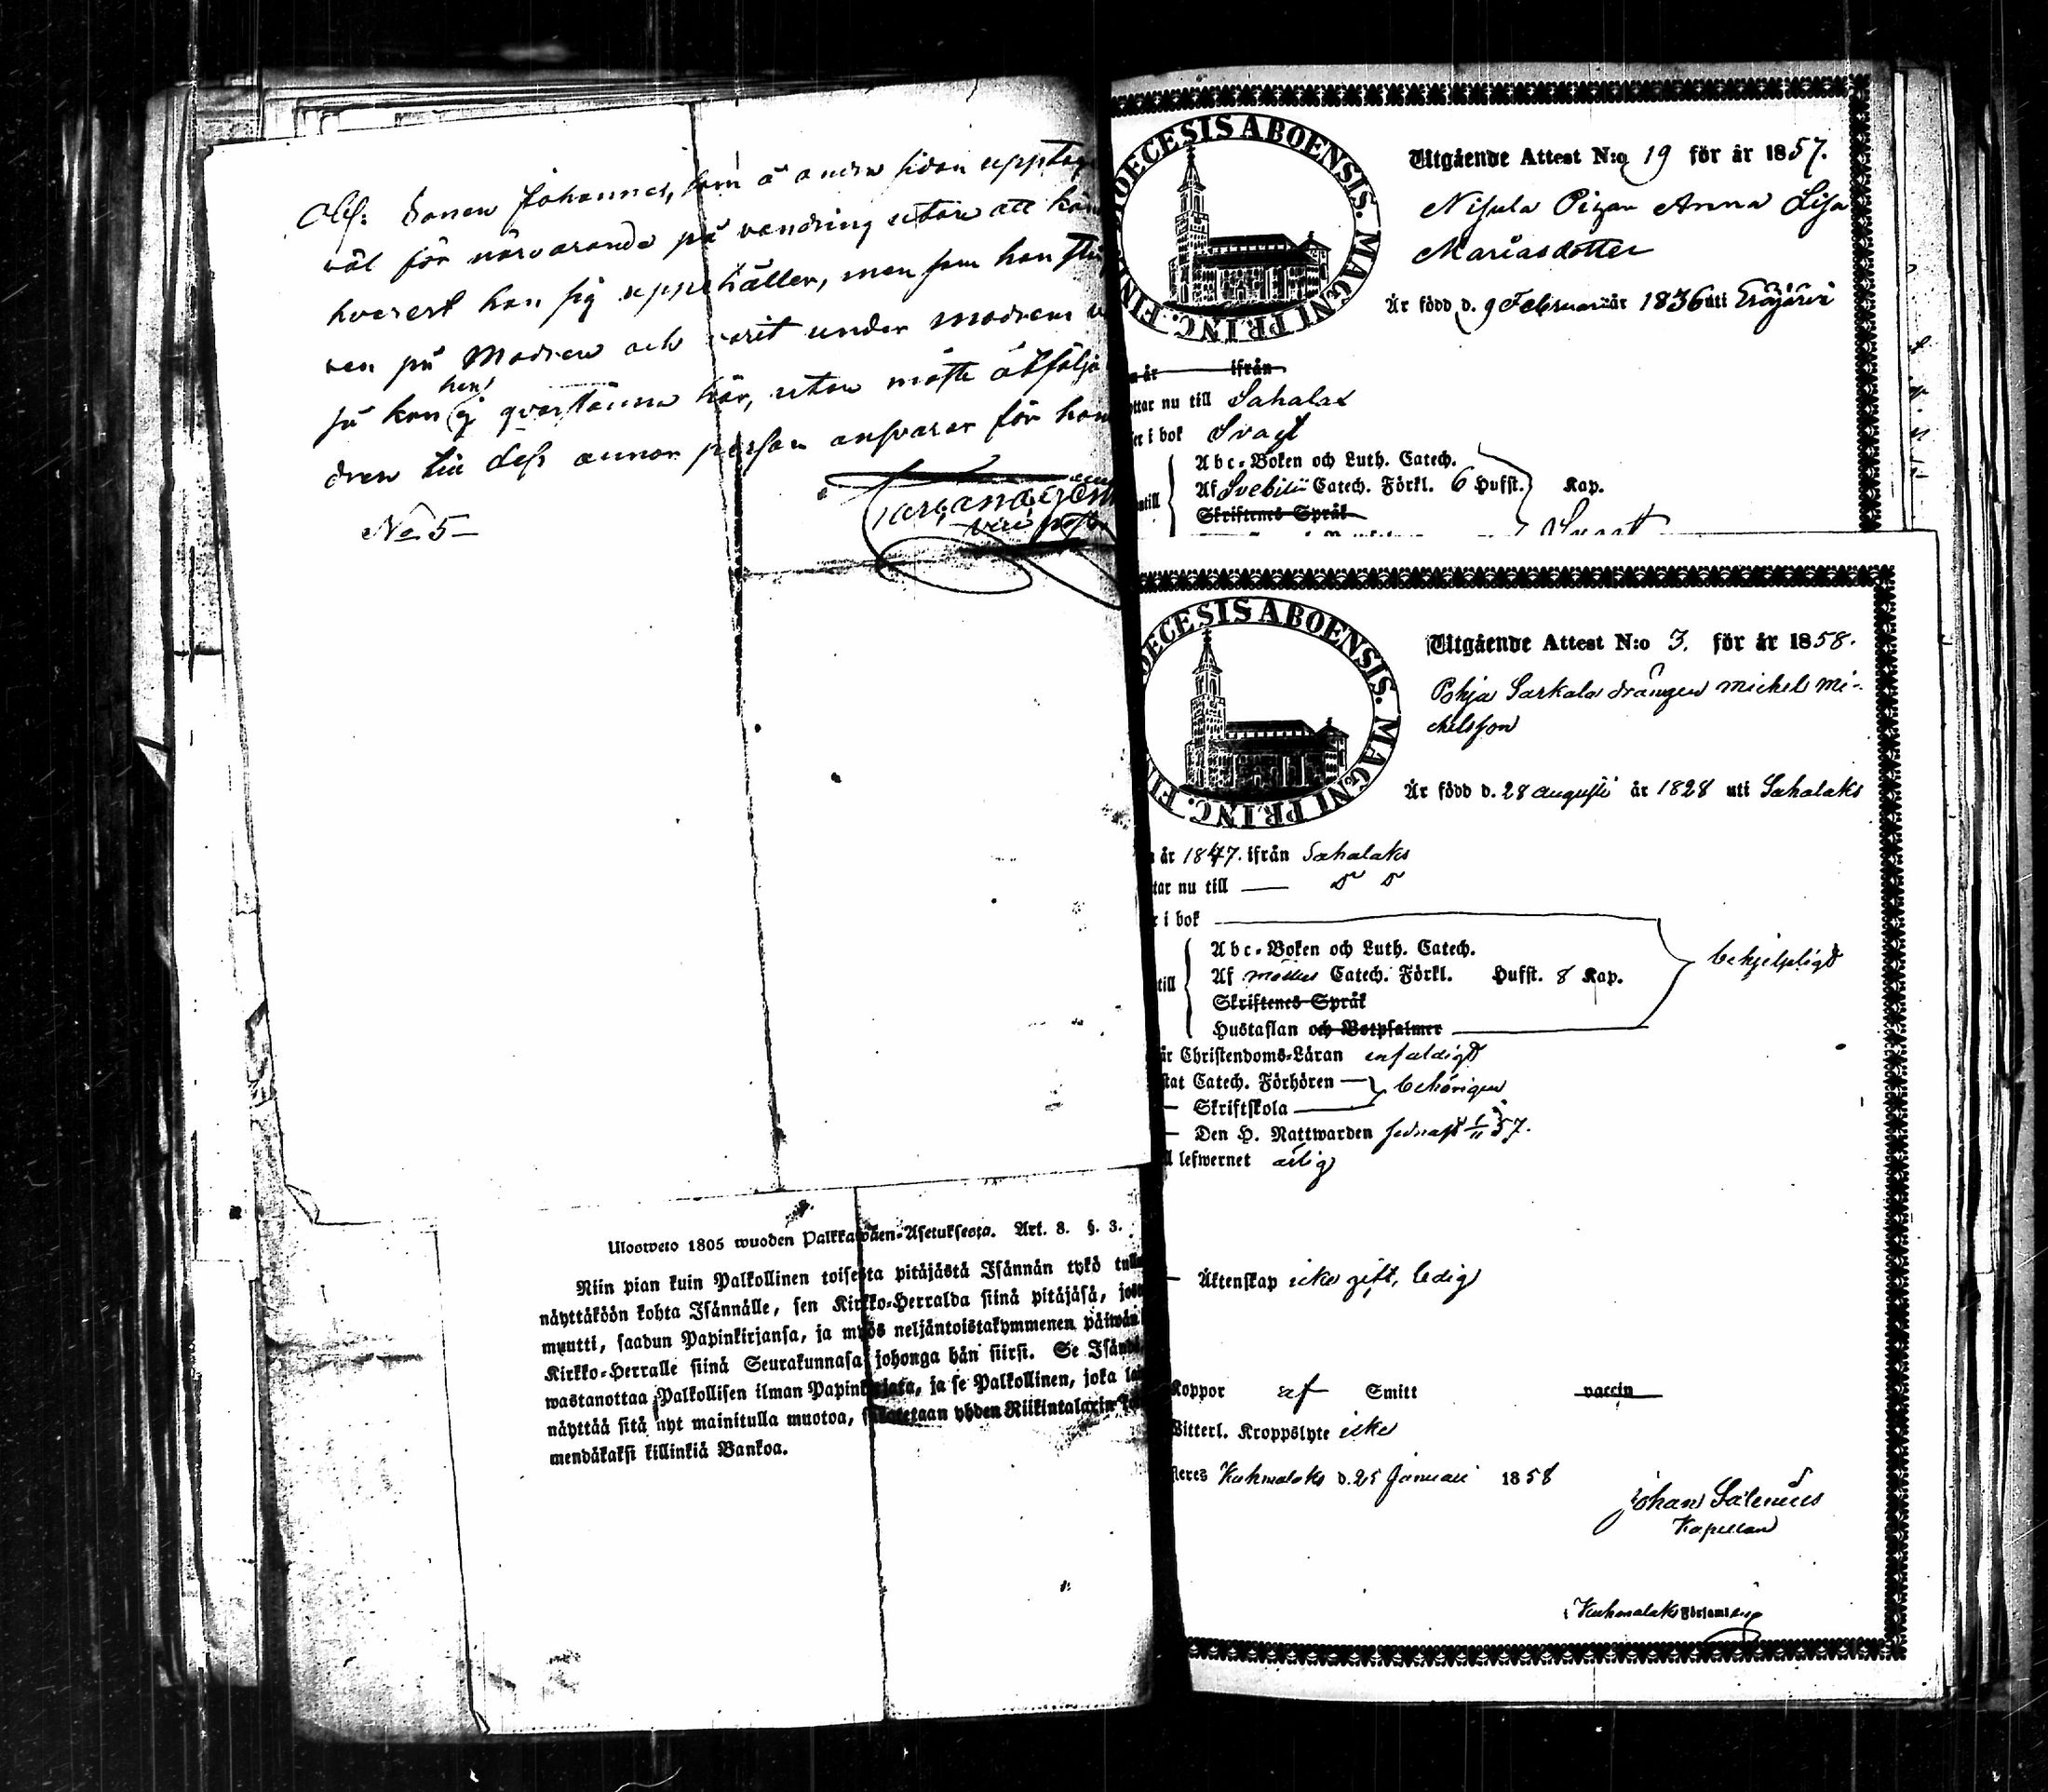 Obs: Sonen Johannes, som å andra sidan upptag
väl för närvarande på vandring utan att
hvarest han sig uppehåller, men som han
ren på Modren och varit under modrens
så kan han ej qvarlämna här, utan måtte åtfölja
dren till dess annor person ansvarar för hon
No 5
Ulosweto 1805 wuoden Palkkawäen-Asetuksesta. Art. 8. §. 3.
Niin pian kuin Palkollinen toisesta pitäjästä Isännän tykö
näyttäköön kohta Isännälle, sen Kirkko-Herralda siinä pitäjäsä,
muutti, saadun Papinkirjansa, ja myös neljäntoistakymmenen päiwän
Kirkko-Herralle siinä Seurakunnasa johonga hän siirsi. Se
wastanottaa Palkollisen ilman Papinkirjata, ja se Palkollinen, joka
näyttää sitä nyt mainitulla muotoa, sakotetaan yhden Riikintalarin
mendäkaksi killinkiä Bankoa.
DIOECESIS ABOENSIS. MAGNI PRINC. FIN
Utgående Attest N:o 19 för år 1857.
Nisula Pigan Anna Lisa
Mariasdotter
Är född d. 9 Februarii år 1836 uti Eräjärvi
år ifrån
ttar nu till Sahalax
i bok Svagt
Abc-Boken och Luth. Catech.
Af Svebilii Catech. Förkl. 6 Hufst. Kap.
Skriftenes Språk
Svagt
DIOECESIS ABOENSIS. MAGNI PRINC. FIN
Utgående Attest N:o 3. för år 1858.
Pohja Sarkala drängen Michel Mi-
chelsson
Är född d. 28 augusti år 1828 uti Sahalaks
år 1847. ifrån Sahalaks
tar nu till — d o
i bok
Abc-Boken och Luth. Catech.
Af Möllers Catech. Förkl. Hufst. 8 Kap.
behjelpligt
Skriftenes Språk
Hustaflan och Botpsalmer
är Christendoms-Läran enfaldigt
stat Catech. Förhören behörigen
— Skriftskola
— Den H. Nattwarden sednast 57.
lefwernet ärlig
— Äktenskap icke gift, ledig
Koppor af Smitt vaccin
Witterl. Kroppslyte icke
Kuhmalaks d. 25 Januari 1858
Johan Salenius
Kapellan
i Kuhmalaks Församling